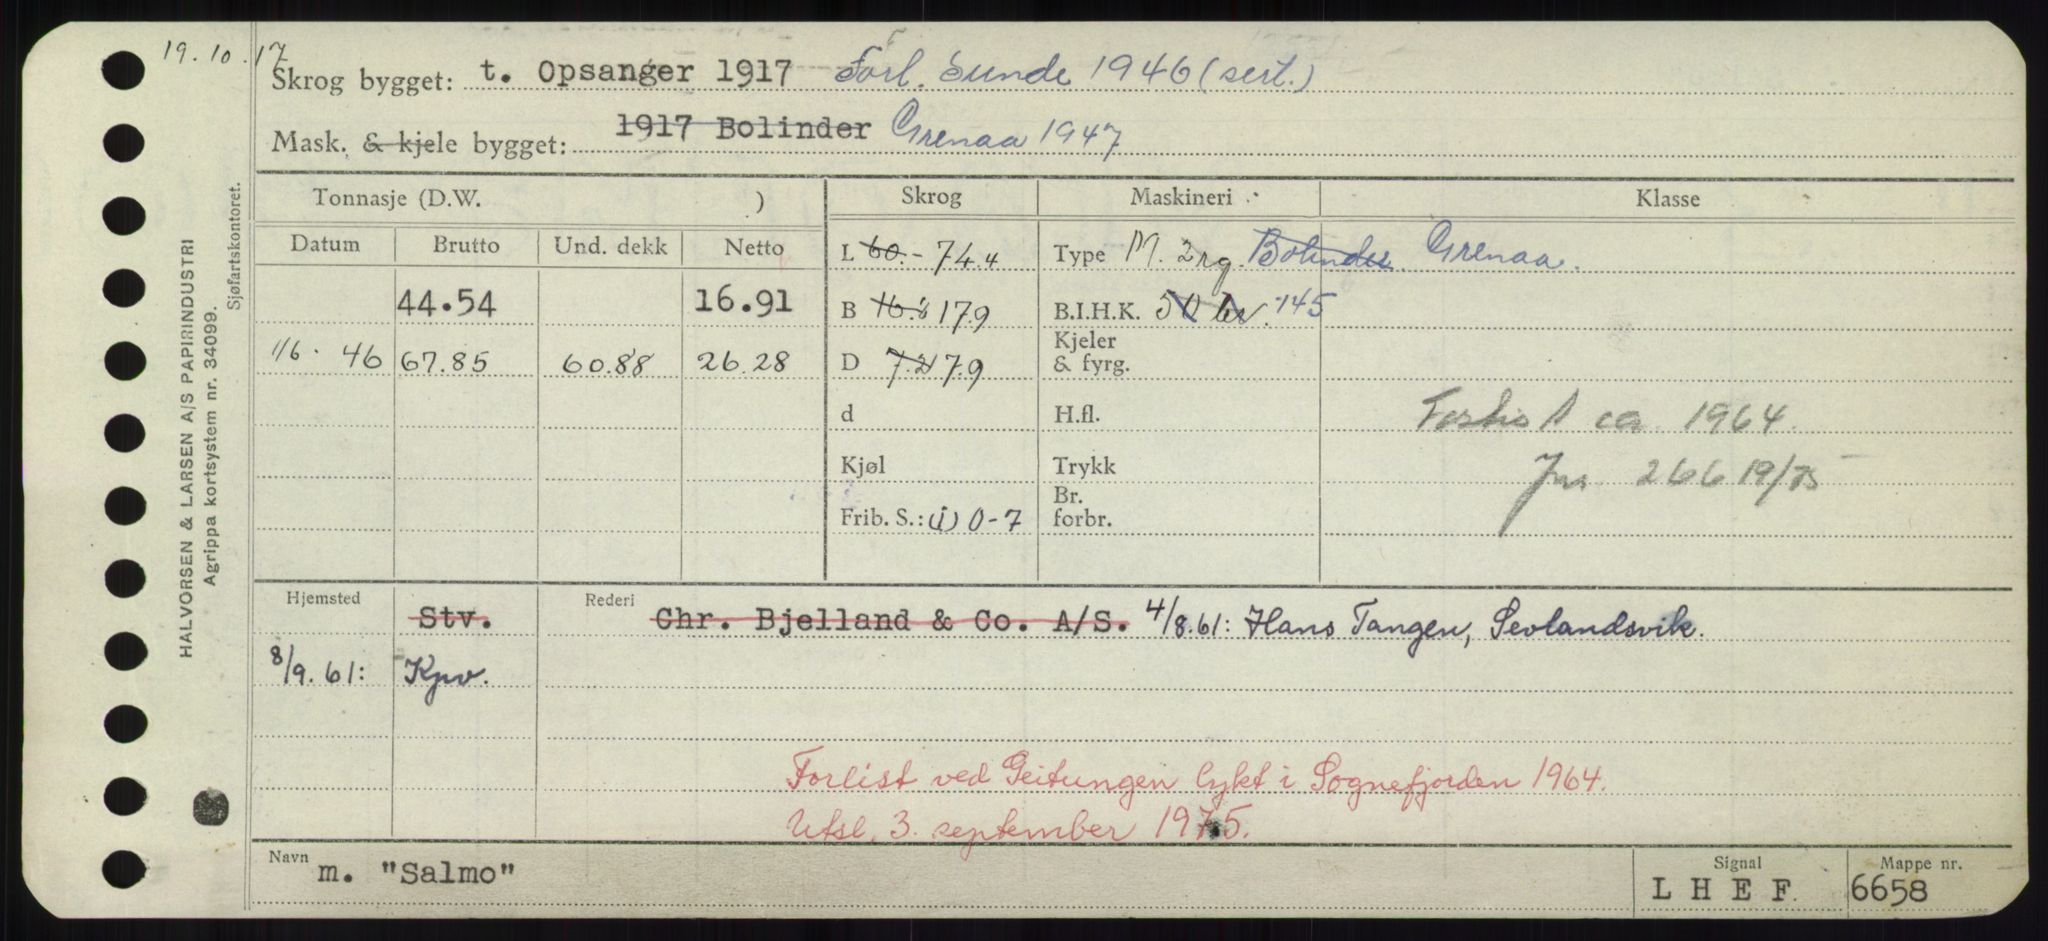 19.10.17
Skrog bygget: t. Opsanger 1917 Forl. Sunde 1946 (sert.)
Mask. & kjele bygget: 1917 Bolinder Grenaa 1947
Tonnasje (D.W. ) Skrog Maskineri Klasse
Datum Brutto Und. dekk Netto L 60.- 74.4 Type M. 2 rg. Bolinder Grenaa.
44.54 16.91 B 17.9 B.I.H.K. 50 145
Kjeler
1/6. 46 67.85 60.88 26.28 D 7.9 & fyrg.
d H.fl. ca. 1964.
Kjøl Trykk Jnr. 26619/75
Br.
Frib. S.: (i) 0-7 forbr.
Hjemsted Stv. Rederi Chr. Bjelland & Co. A/S. 4/8.61: Hans Tangen, Sevlandsvik.
8/9.61: Kpv.
Forlist ved Geitungen lykt i Sognefjorden 1964.
Utsl. 3. september 1975.
Navn m. "Salmo" Signal LHEF Mappe nr. 6658
HALVORSEN & LARSEN A/S PAPIRINDUSTRI
Agrippa kortsystem nr. 34099.
Sjøfartskontoret.